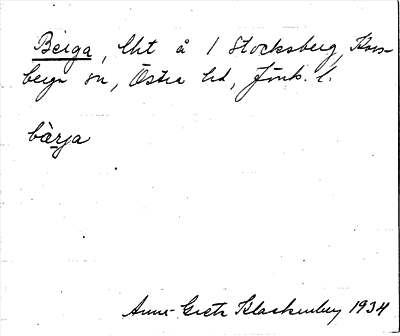 Berga, lht å 1 Stocksberg, Kors-
berga sn, Östra hd, Jönk. l.
bàrja
Anna-Greta Klackenberg 1934